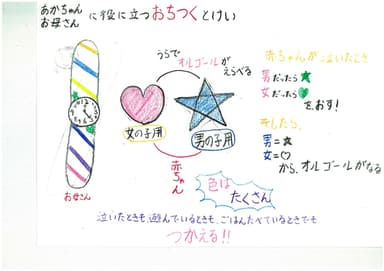 あかちゃん
お母さん に役に立つおちつくとけい
うらで
オルゴールが
えらべる
女の子用
男の子用
赤ちゃん
お母さん
赤ちゃんが泣いたとき
男だったら★
女だったら♥
をおす!
そしたら、
男=★
女=♡
から、オルゴールがなる
色は
たくさん
泣いたときも、遊んでいるときも、ごはんたべているときでも
つかえる!!